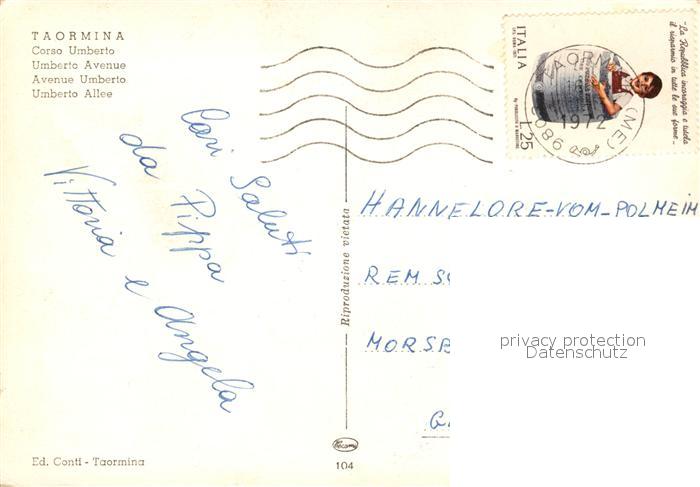 TAORMINA
Corso Umberto
Umberto Avenue
Avenue Umberto
Umberto Allee
Cari Saluti
da Pippa
Vittoria e Angela
Ed. Conti - Taormina
Riproduzione vietata
104
ITALIA
L.25
"La Repubblica incoraggia e tutela
il risparmio in tutte le sue forme"
TAORMINA (ME)
1972
98039
HANNELORE-VOM-POLHEIM
REM SC
MORSB
G.
privacy protection
Datenschutz